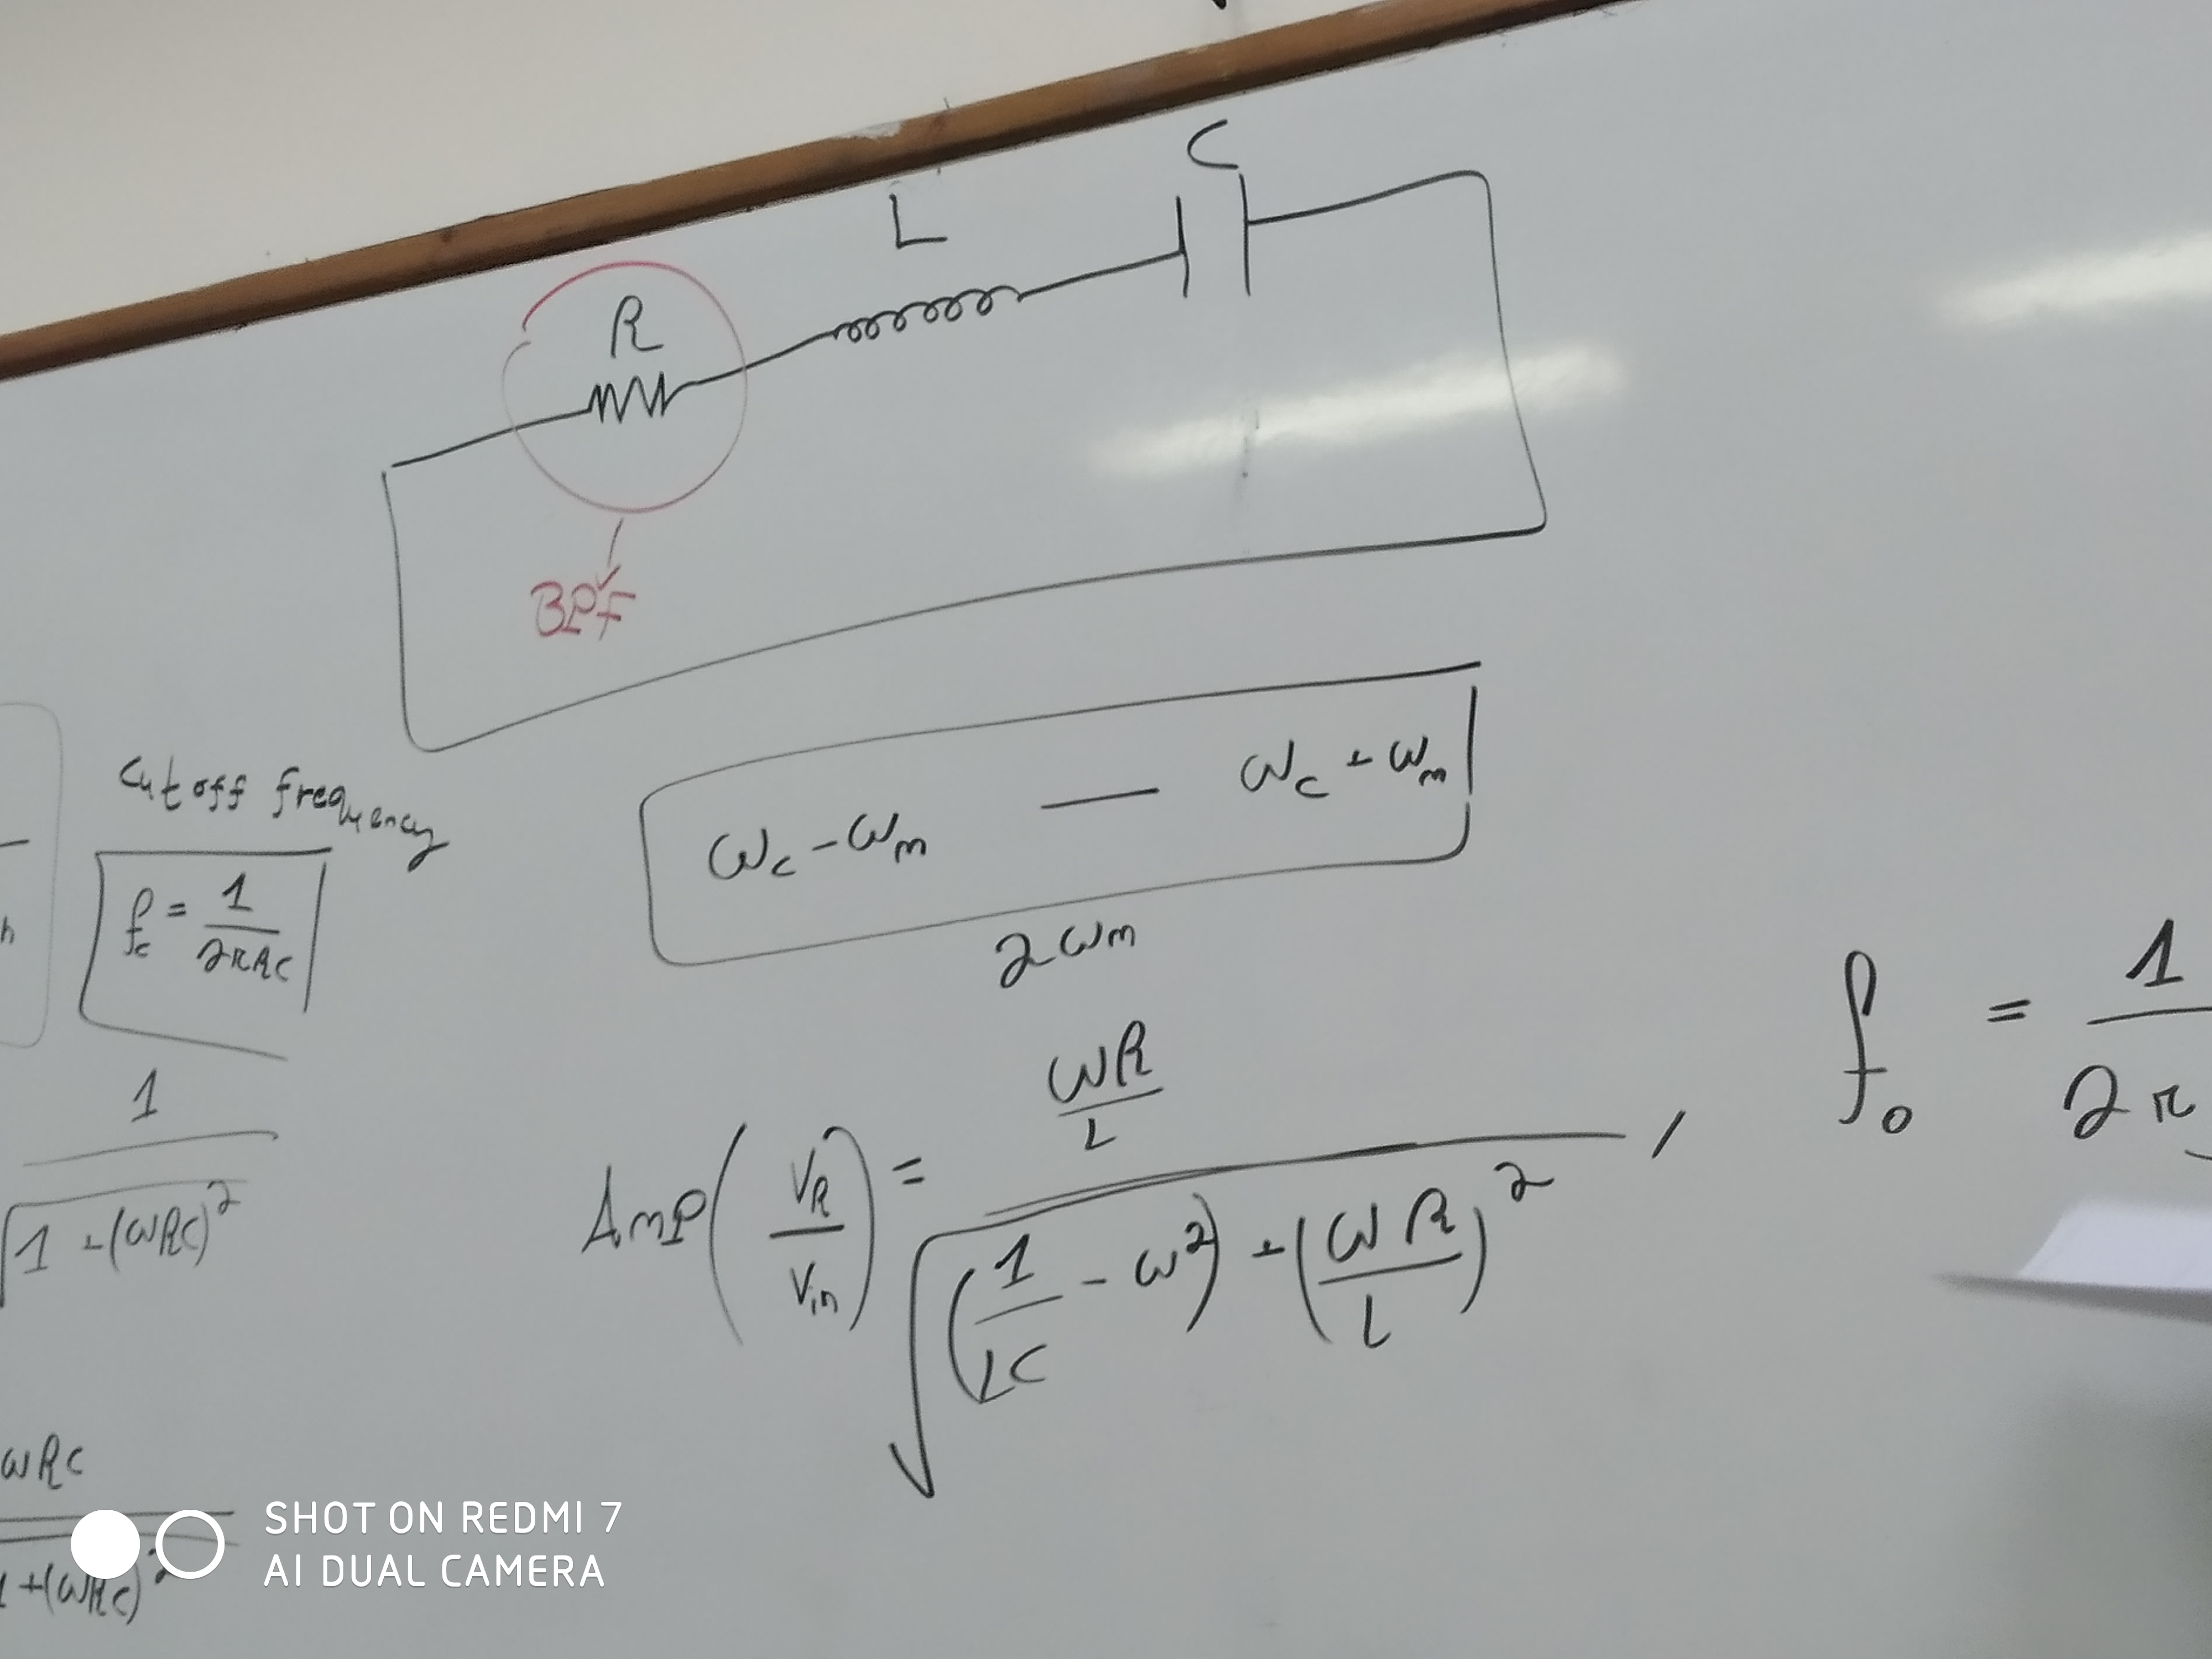 C
L
R
BPF
Cutoff frequency
f_c = 1/(2πRC)
ω_c - ω_m — ω_c + ω_m
2ω_m
1/√(1 + (ωRC)²)
Amp(V_R/V_in) = (ωR/L)/√((1/LC - ω²) + (ωR/L)²) , f_0 = 1/2π
ωRC
1+(ωRC)²
SHOT ON REDMI 7
AI DUAL CAMERA